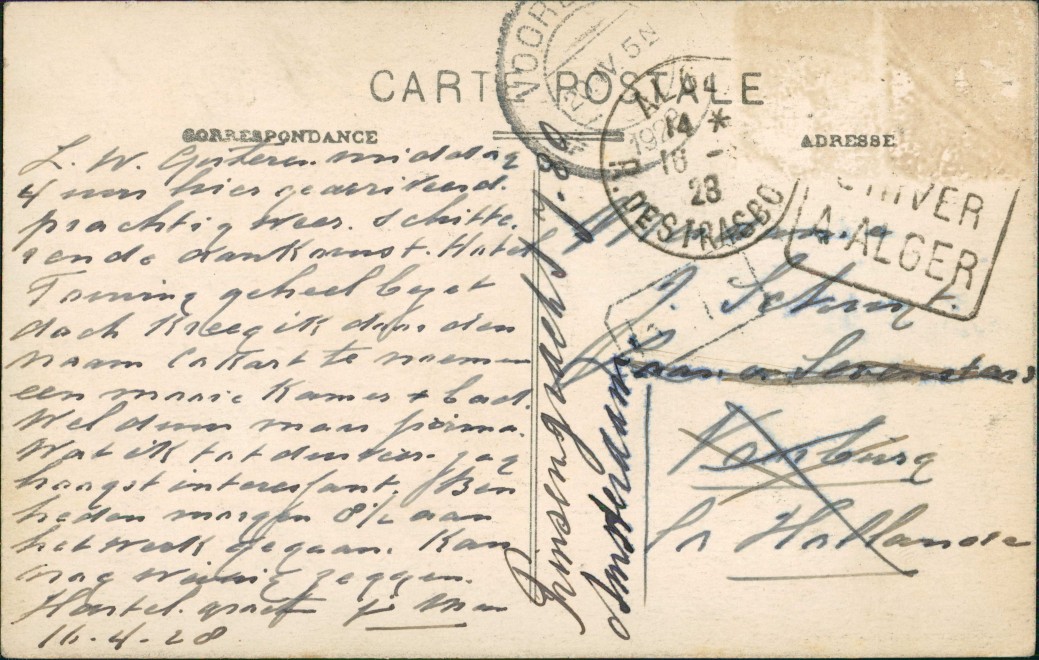 CARTE POSTALE
CORRESPONDANCE
ADRESSE
NOOR
IV 5N
1928
14 *
16 -
28
R. DE STRASBO
HIVER
A ALGER
L. W. Gisteren middag
4 uur hier gearriveerd.
prachtig weer. Schitte-
rende aankomst. Hotel
geheel bezet
doch kreeg ik door den
naam te noemen
een mooie kamer + bad.
Wel duur maar prima.
Wat ik tot dusver zag
hoogst interessant. Ben
heden morgen 8½ aan
het werk gegaan. Kan
nog weinig zeggen.
Hartel. groet
16-4-28
J. Schuit
Laan v. Sevenster
Voorburg
La Hollande
Prinsengracht
Amsterdam